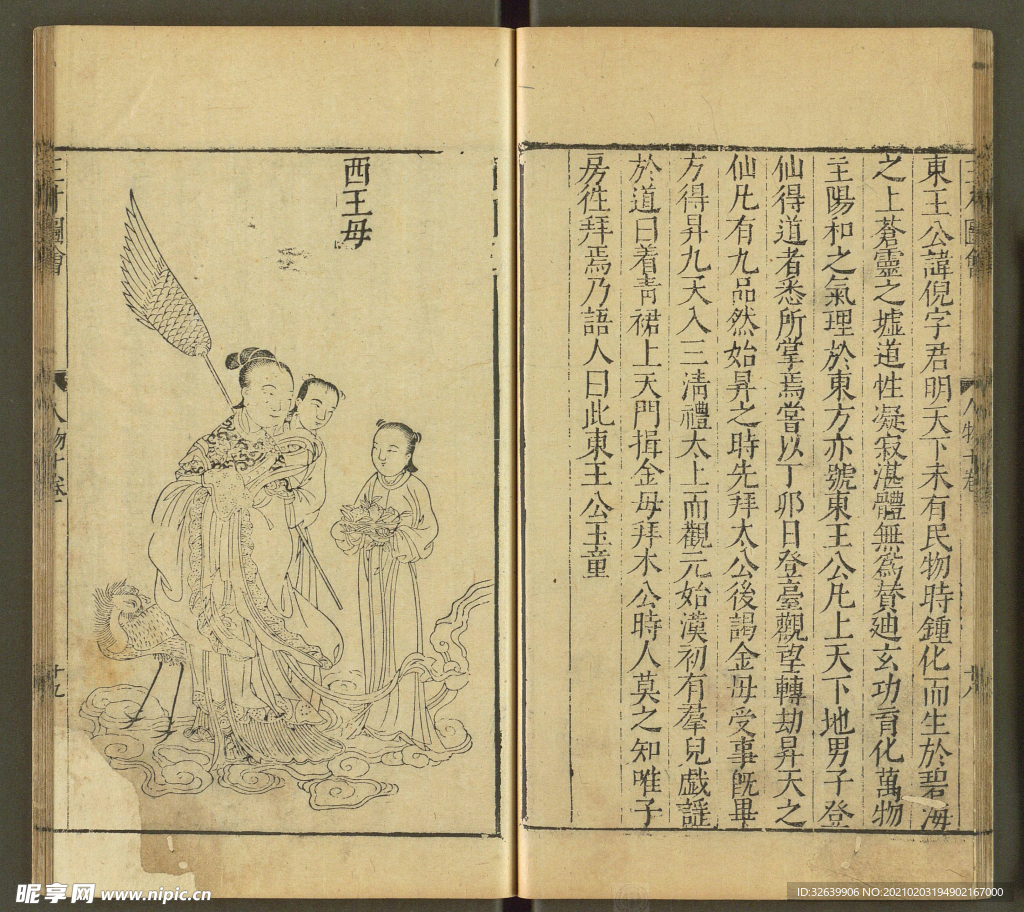 東王公諱倪字君明天下未有民物時鍾化而生於碧海
之上蒼靈之墟道性凝寂湛體無為贊廸玄功育化萬物
主陽和之氣理於東方亦號東王公凡上天下地男子登
仙得道者悉所掌焉嘗以丁卯日登臺觀望轉劫昇天之
仙凡有九品然始昇之時先拜太公後謁金母受事旣畢
方得昇九天入三清禮太上而觀元始漢初有羣兒戲謡
於道曰着青裙上天門揖金母拜木公時人莫之知唯子
房徃拜焉乃語人曰此東王公玉童
三才圖會
人物十卷
廿八
西王母
三才圖會
人物十卷
十九
昵享网 www.nipic.cn
ID:32639906 NO:20210203194902167000